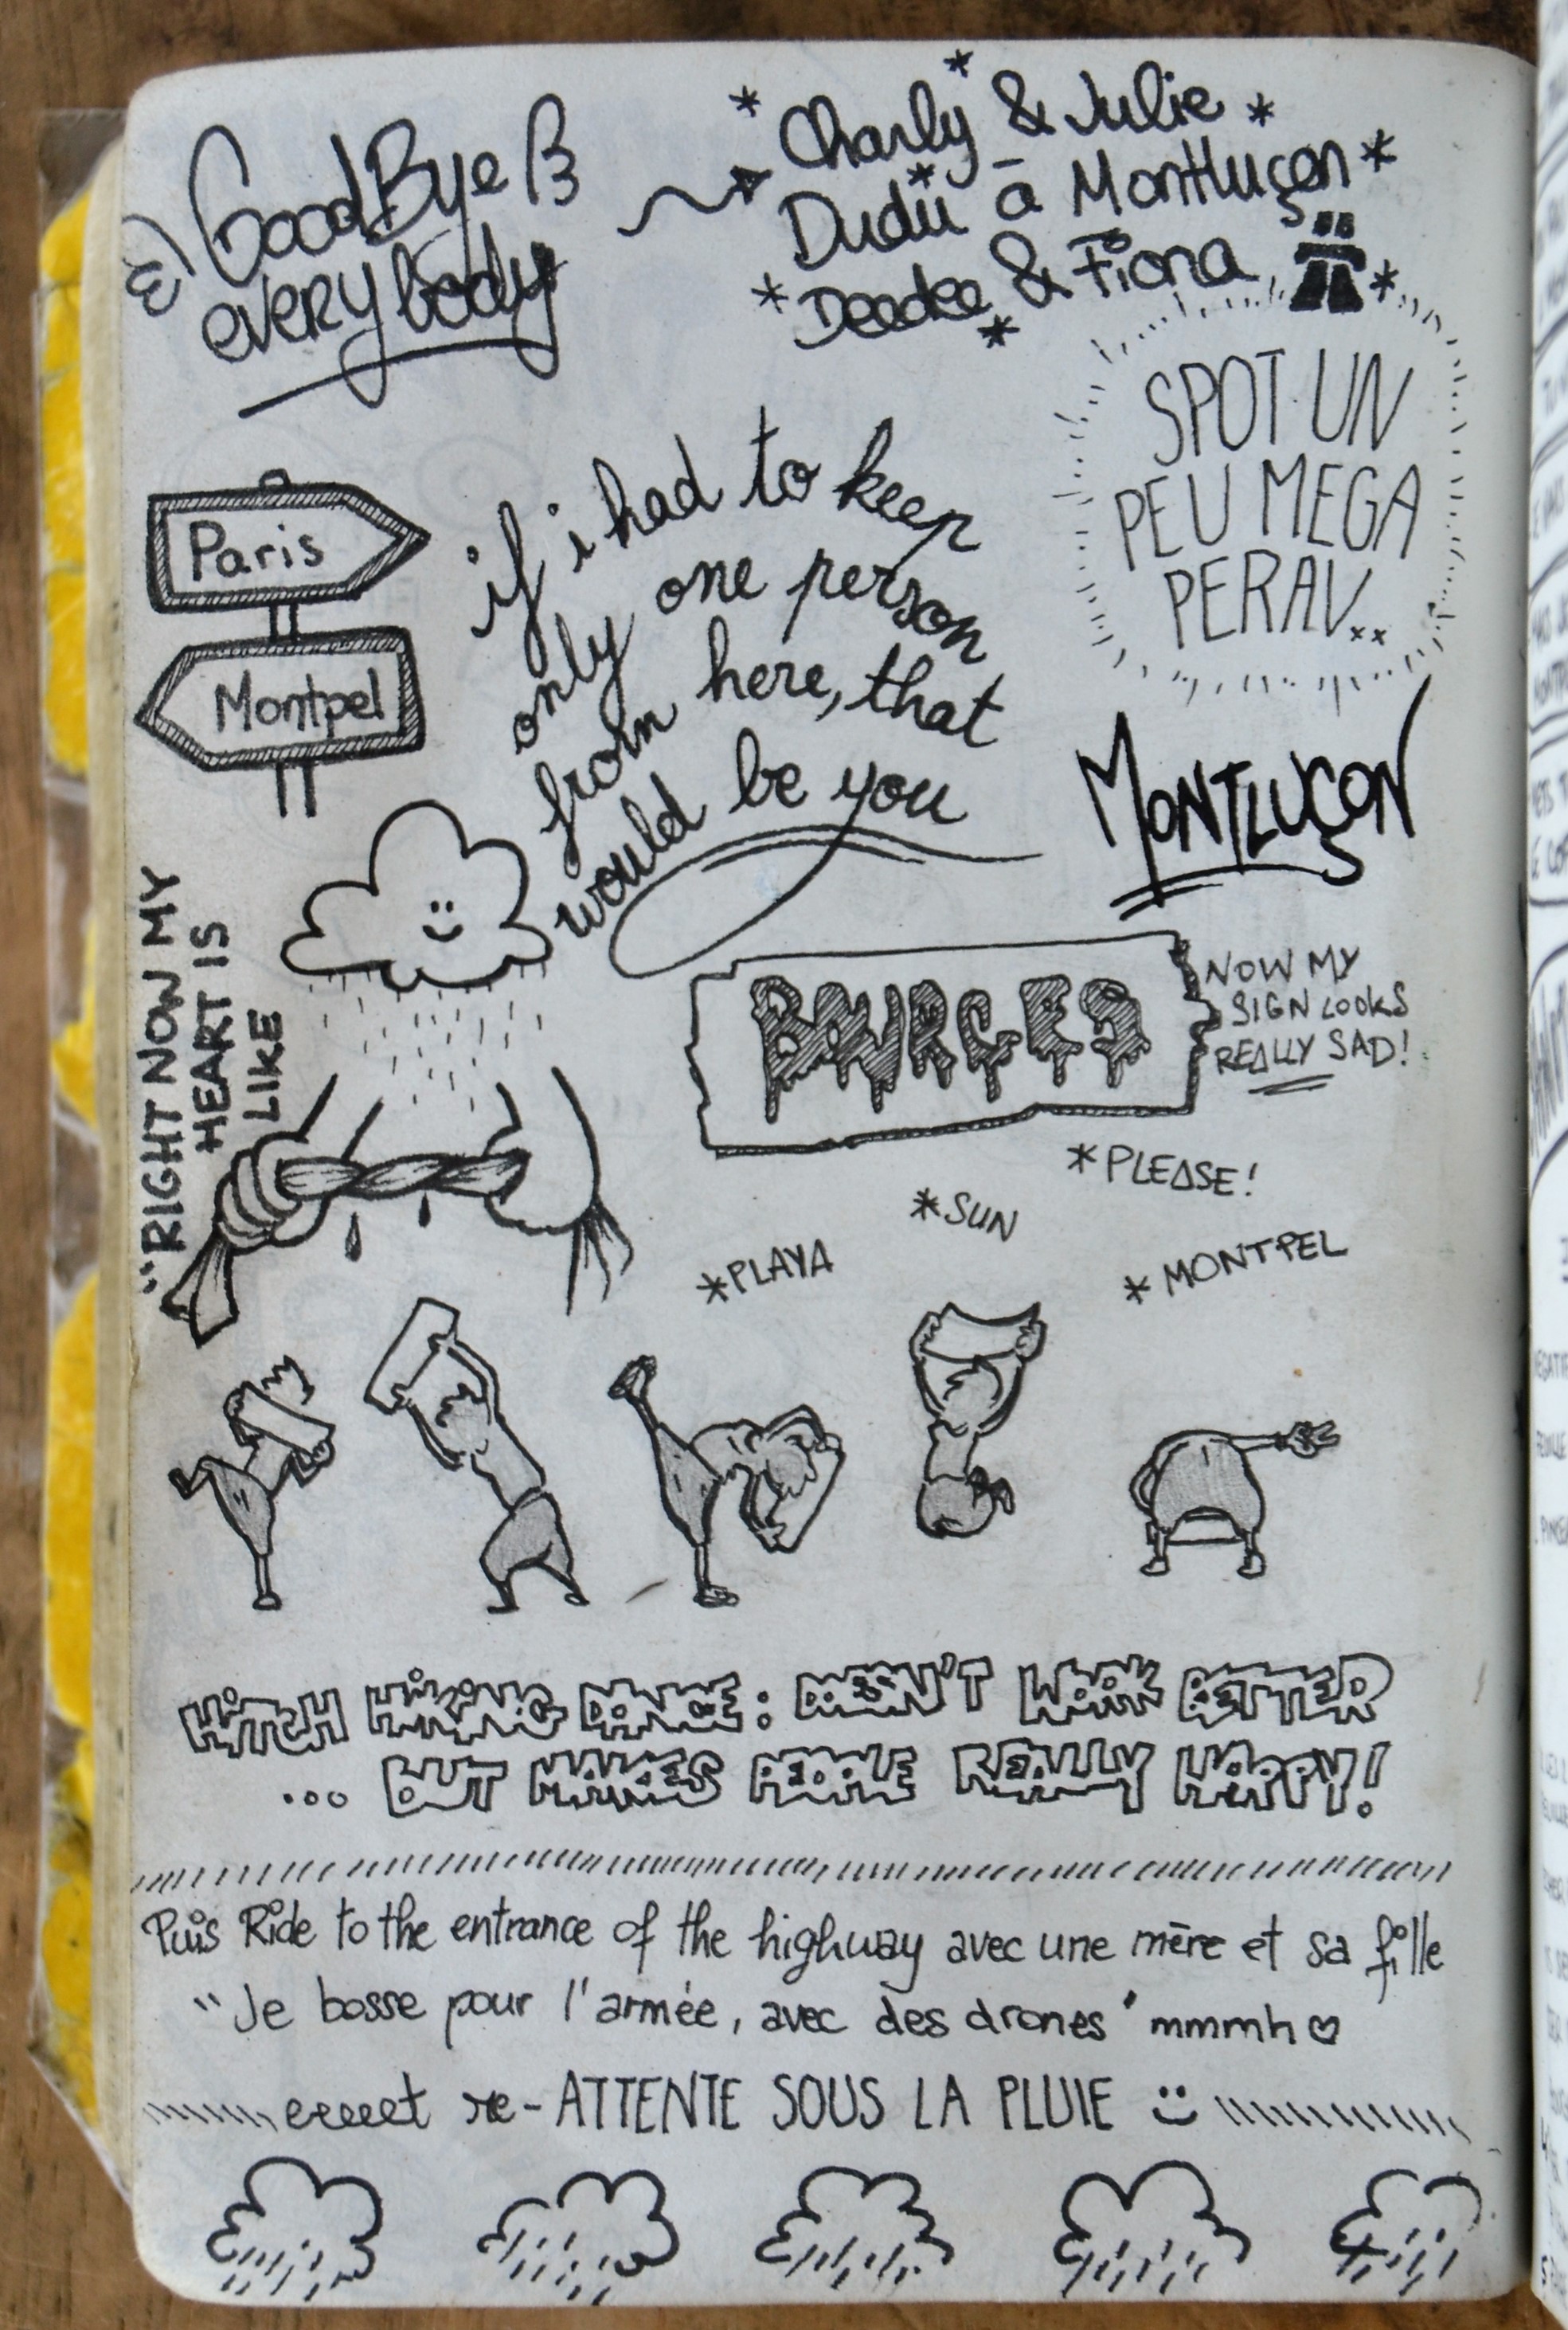 GoodBye
everybody
* Charly * & Julie *
Dudiu * à Montluçon *
* Deedee * & Fiona *
SPOT UN
PEU MEGA
PERAV..
Paris
Montpel
if i had to keep
only one person
from here, that
would be you
MONTLUÇON
"RIGHT NOW MY
HEART IS
LIKE
BOURGES
NOW MY
SIGN LOOKS
REALLY SAD!
*PLEASE!
*SUN
*PLAYA
*MONTPEL
HITCH HIKING DANCE: DOESN'T WORK BETTER
... BUT MAKES PEOPLE REALLY HAPPY!
Puis Ride to the entrance of the highway avec une mère et sa fille
"Je bosse pour l'armée, avec des drones" mmmh ♡
eeeeet re-ATTENTE SOUS LA PLUIE